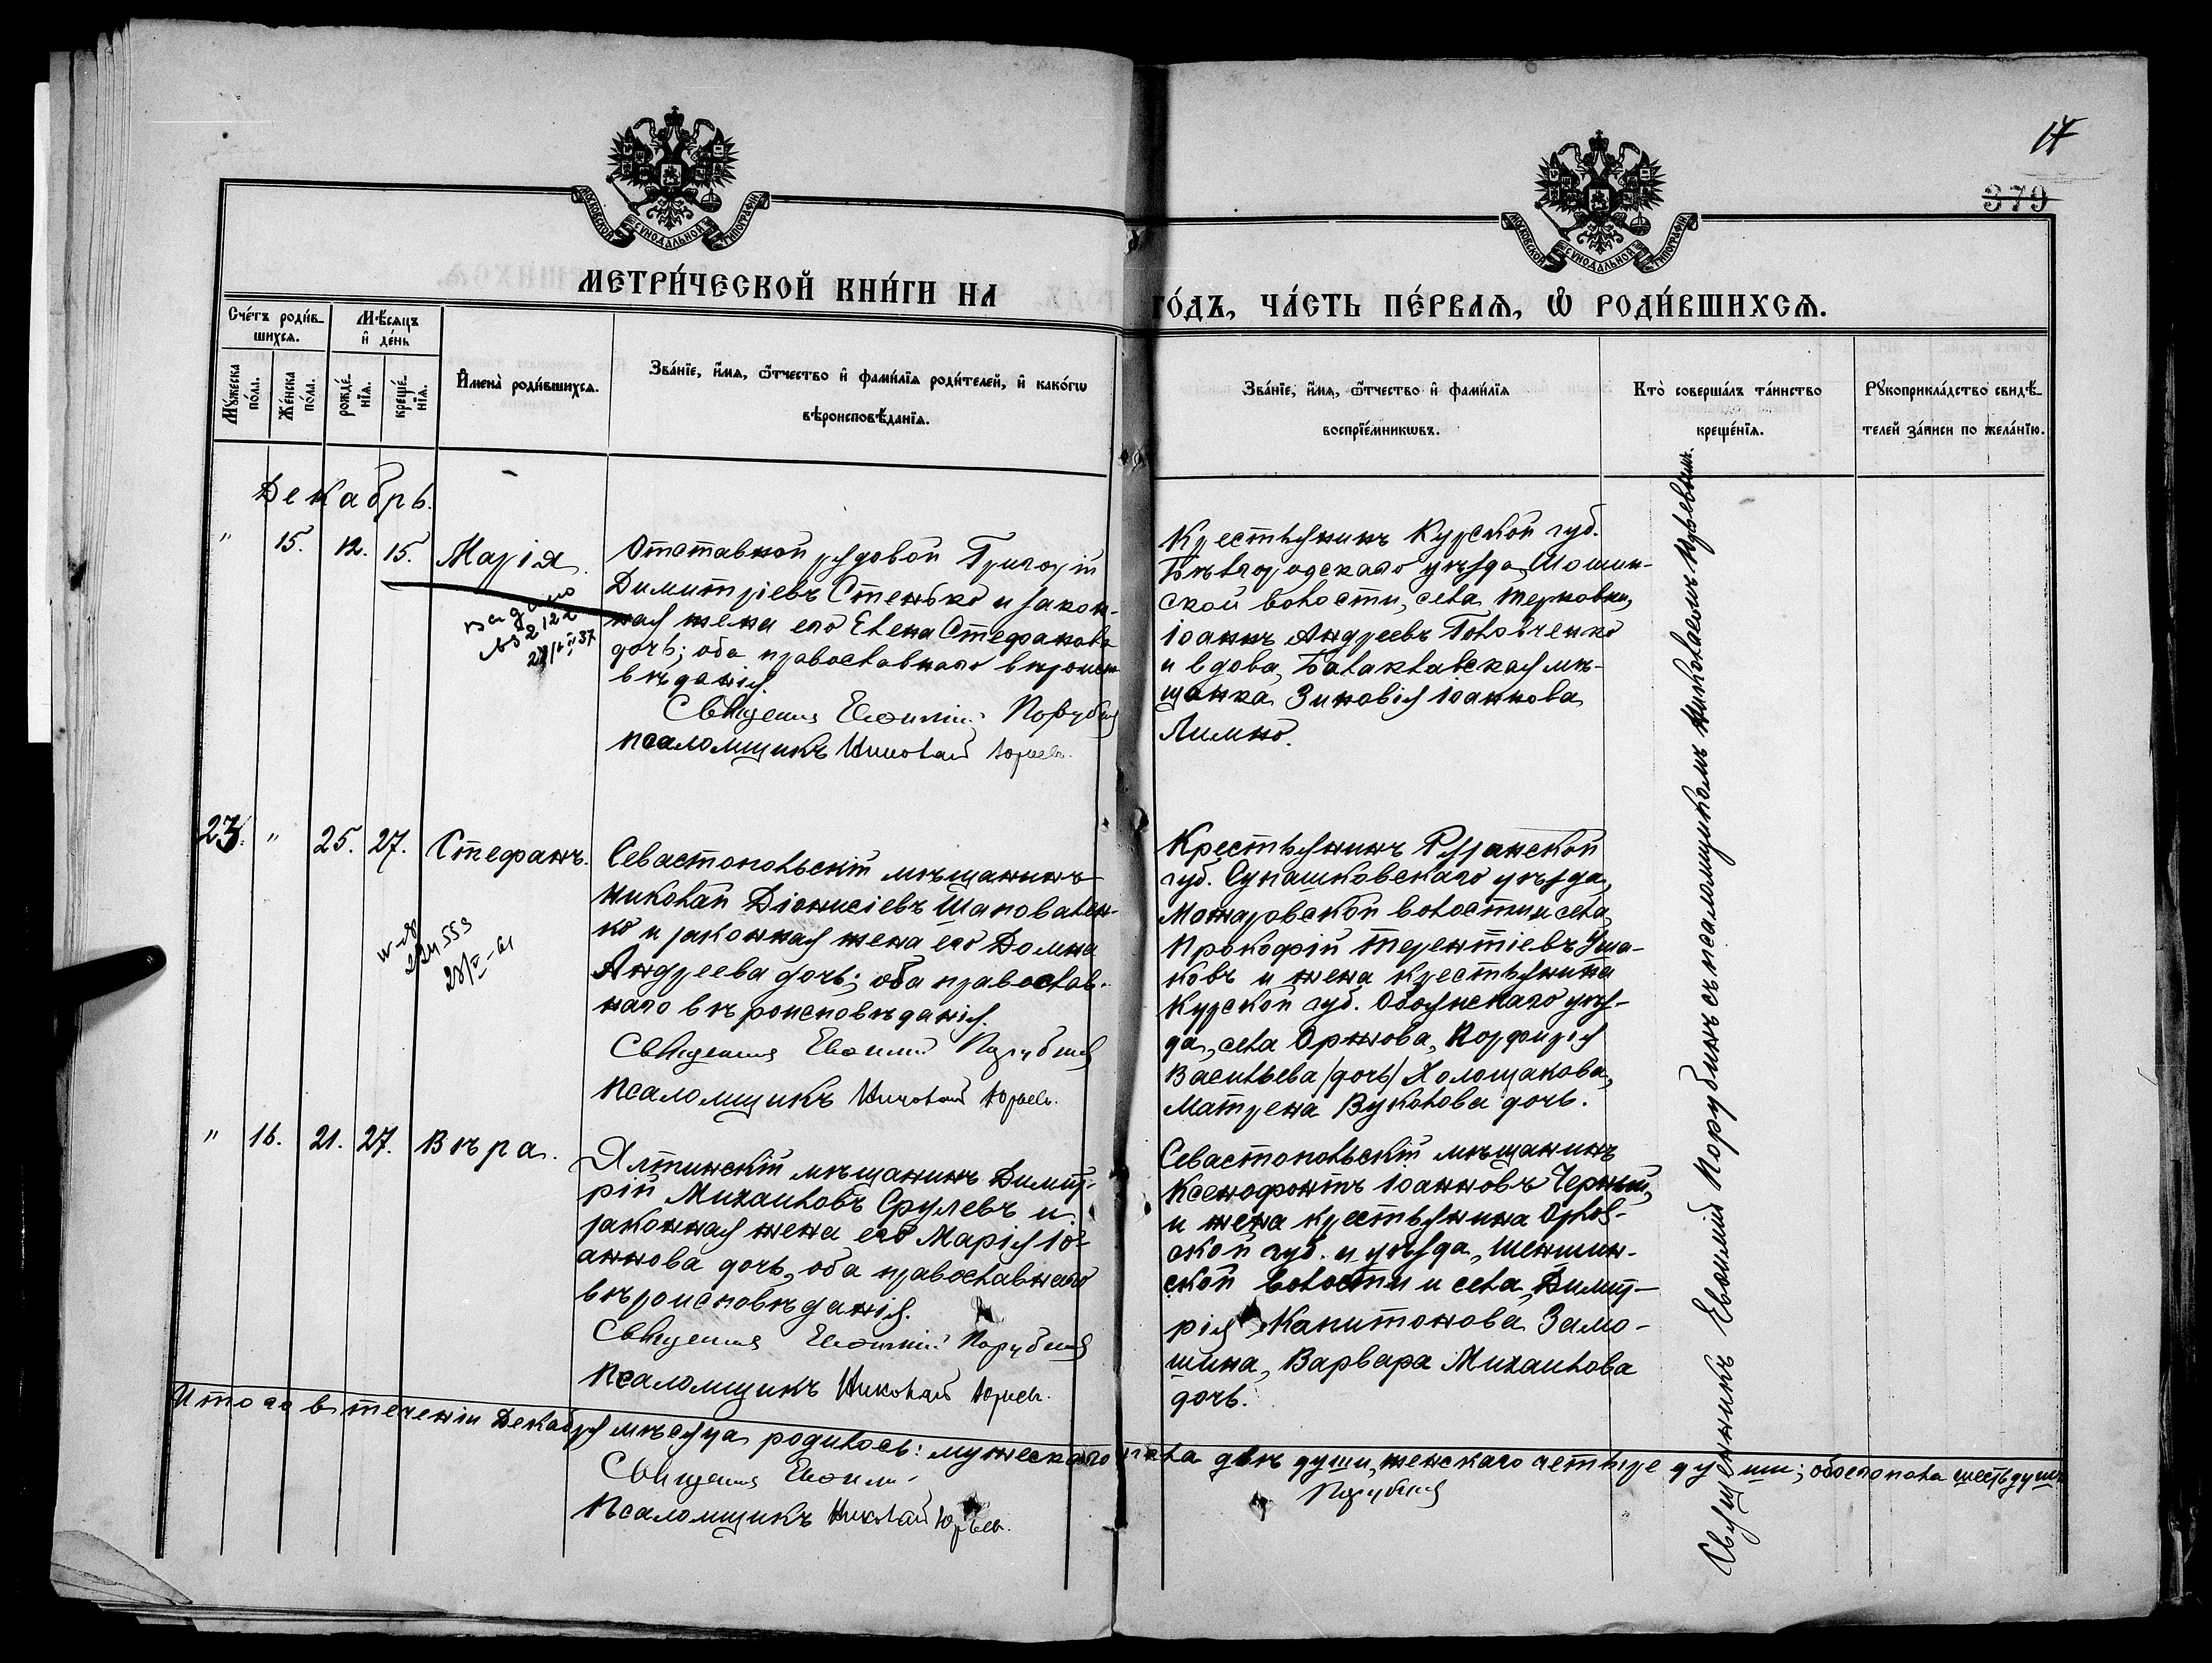 17
379
МОСКОВСКОЙ СУНОДАЛЬНОЙ ТИПОГРАФІИ
МОСКОВСКОЙ СУНОДАЛЬНОЙ ТИПОГРАФІИ
МЕТРИ́ЧЕСКОЙ КНИ́ГИ НА ГО́ДЪ, ЧА́СТЬ ПЕ́РВАЯ, Ѡ РОДИ́ВШИХСЯ.
Сче́тъ роди́в-
шихся.
Мѣ́сяцъ
и҆ де́нь
Му́жеска
по́ла.
Же́нска
по́ла.
рожде́-
нїя.
креще́-
нїя.
И҆мена̀ роди́вшихся.
Зва́нїе, и҆́мя, ѻ҆́тчество и҆ фами́лїя роди́телей, и҆ како́гѡ
вѣроисповѣ́данїя.
Зва́нїе, и҆́мя, ѻ҆́тчество и҆ фами́лїя
воспрїе́мникѡвъ.
Кто̀ соверша́лъ та́инство
креще́нїя.
Рукоприкла́дство свидѣ́-
телей за́писи по жела́нїю.
Декабрь.
" 15. 12. 15. Марія.
Отставной рядовой Григорій
Димитріевъ Стенько и закон-
ная жена его Елена Стефанова
дочь; оба православнаго вѣроиспо-
вѣданія.
Священник Евѳимій Порубин
Псаломщикъ Николай Юрьевъ.
Крестьянинъ Курской губ.
Бѣлгородскаго уѣзда, Шошин-
ской волости, села Терновки,
Іоаннъ Андреевъ Головченко
и вдова, Балаклавская мѣ-
щанка Зиновія Іоаннова
Лимно.
выдано
28/II 37
23. " 25. 27. Стефанъ.
Севастопольскій мѣщанинъ
Николай Діонисіевъ Шаповален-
ко и законная жена его Домна
Андреева дочь; оба православ-
наго вѣроисповѣданія.
Священник Евѳимій Порубин
Псаломщикъ Николай Юрьевъ.
Крестьянинъ Рязанской
губ. Сапожковскаго уѣзда,
Можаровской волости и села,
Прокофій Терентіевъ Уша-
ковъ и жена крестьянина
Курской губ. Обоянскаго уѣз-
да, села Орлова, Порфирія
Васильева /дочь/ Холощакова,
Матрена Вуколова дочь.
" 16. 21. 27. Вѣра.
Ялтинскій мѣщанинъ Димит-
рій Михаиловъ Срулевъ и
законная жена его Марія Іо-
аннова дочь, оба православнаго
вѣроисповѣданія.
Священник Евѳимій Порубин
Псаломщикъ Николай Юрьевъ.
Севастопольскій мѣщанинъ
Ксенофонтъ Іоанновъ Черный,
и жена крестьянина Орлов-
ской губ. и уѣзда, Шеншин-
ской волости и села, Димит-
рія Капитонова Замо-
шина, Варвара Михаилова
дочь.
Священникъ Евѳимій Порубинъ съ псаломщикомъ Николаемъ Юрьевымъ.
Итого в теченіи Декабря мѣсяца родилось: мужескаго пола двѣ души, женскаго четыре души; обоего пола шесть душъ.
Священник Евѳимій Порубин
Псаломщикъ Николай Юрьевъ.